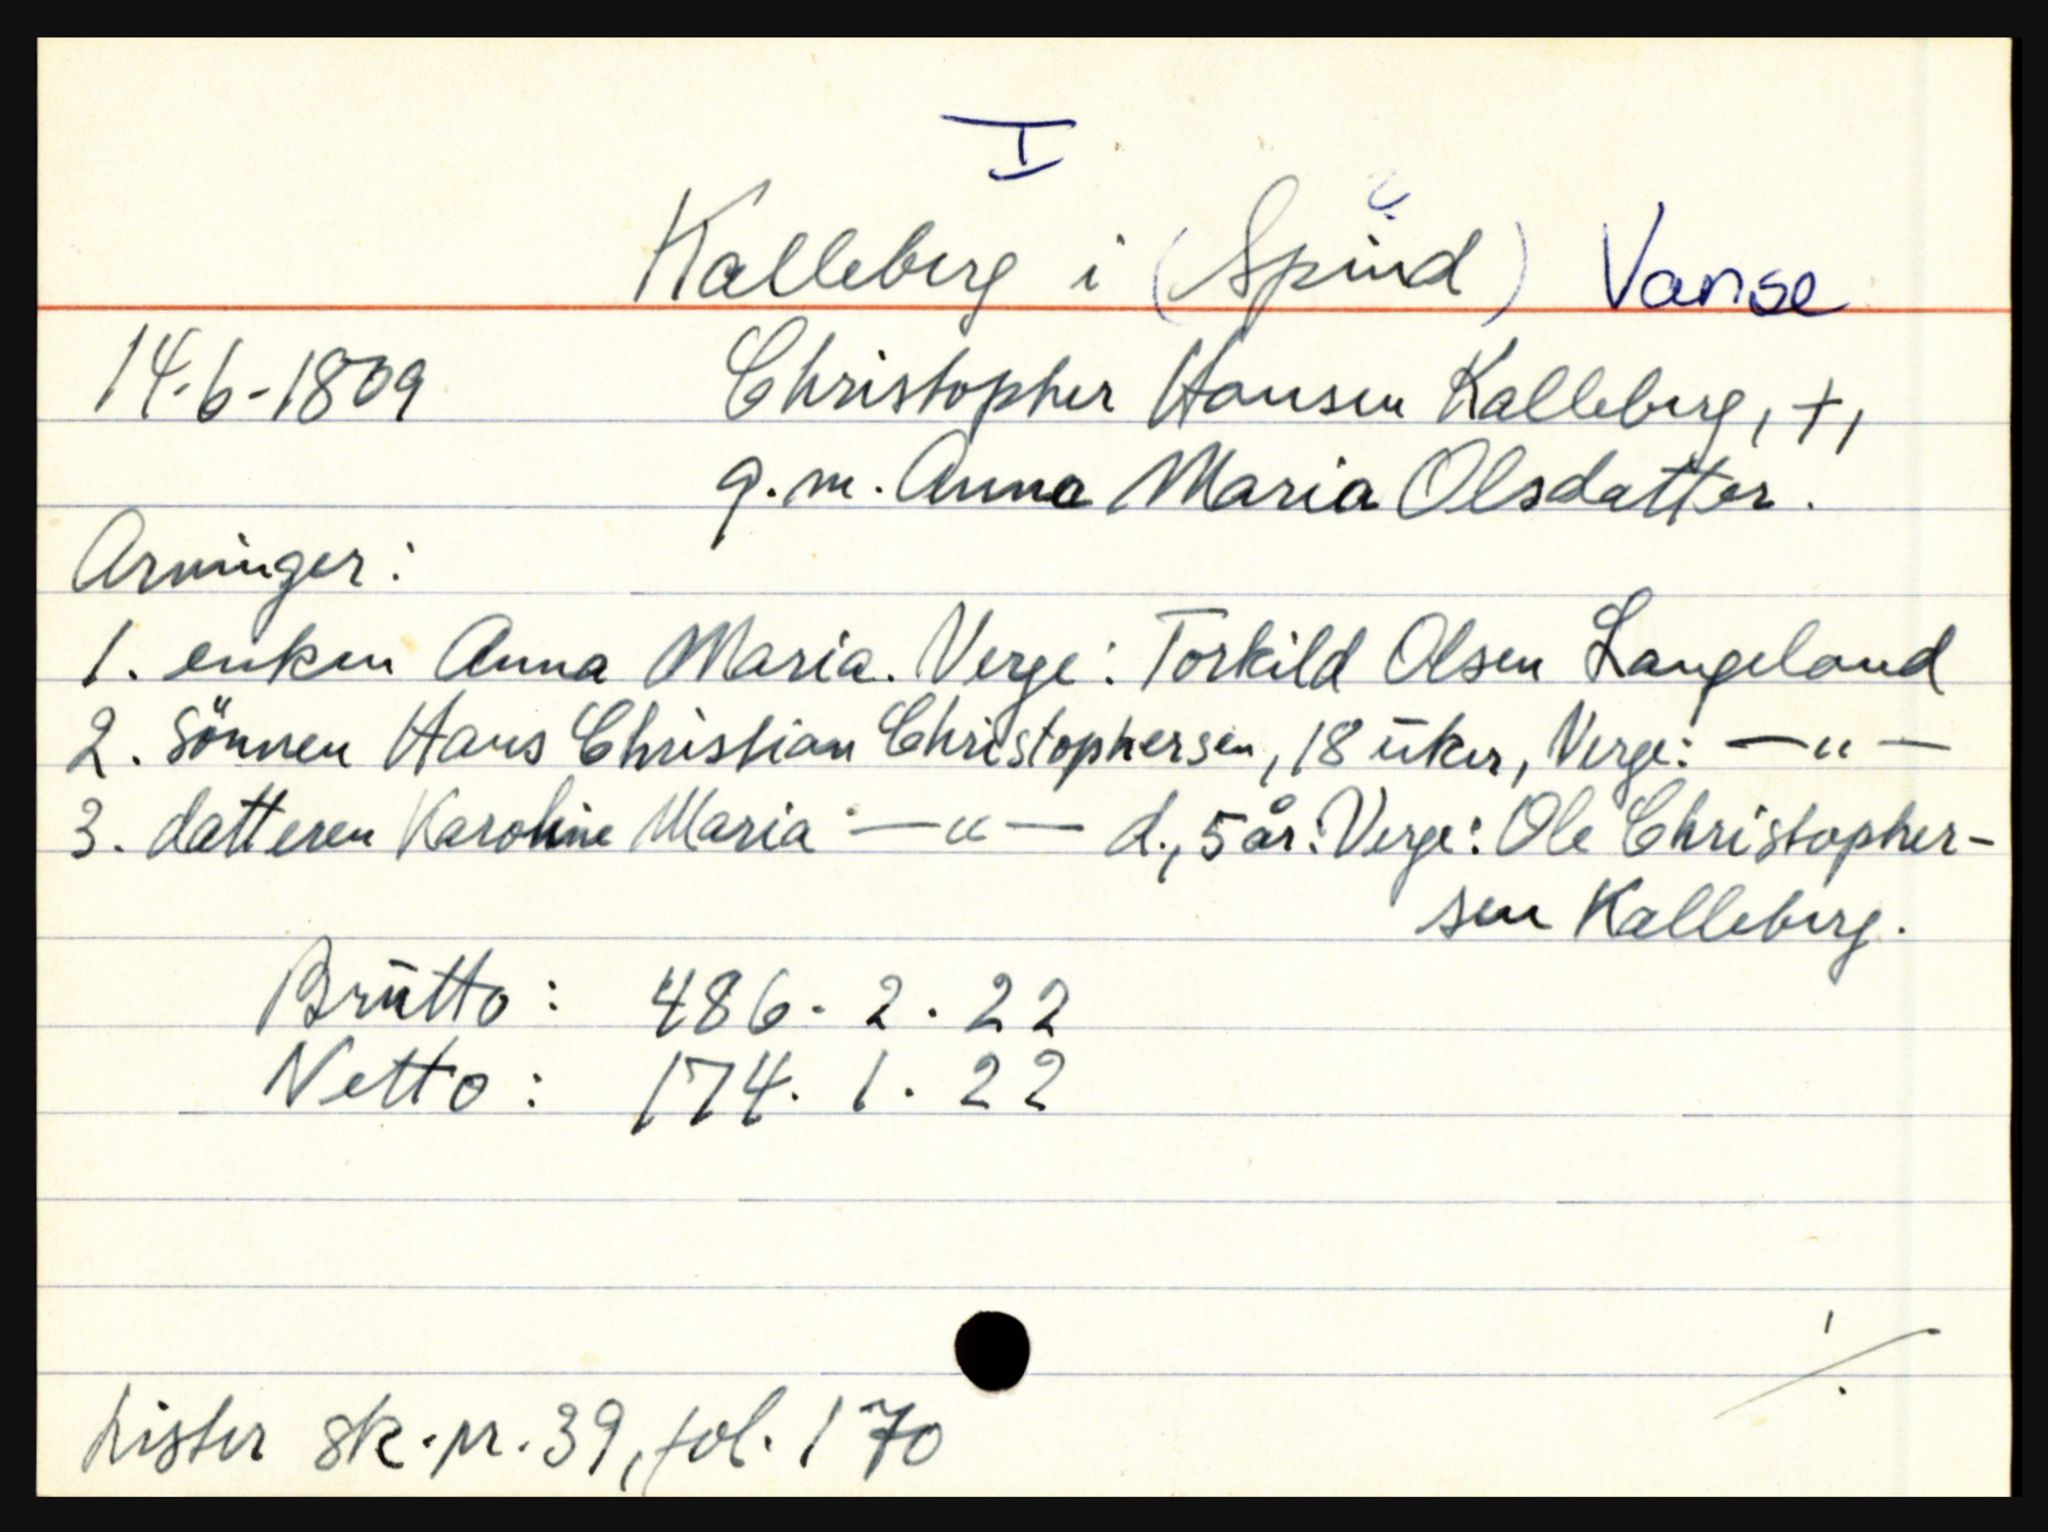 I
Kalleberg i (Spind) ? Vanse
14-6-1809 Christopher Hansen Kalleberg, +,
g.m. Anna Maria Olsdatter.
Arvinger:
1. enken Anna Maria. Verge: Torkild Olsen Langeland
2. Sönnen Hans Christian Christophersen, 18 uker, Verge: —"—
3. datteren Karoline Maria —"— d., 5 år: Verge: Ole Christopher-
sen Kalleberg.
Brutto: 486. 2. 22
Netto: 174. 1. 22
./.
Lister sk.pr. 39, fol. 170